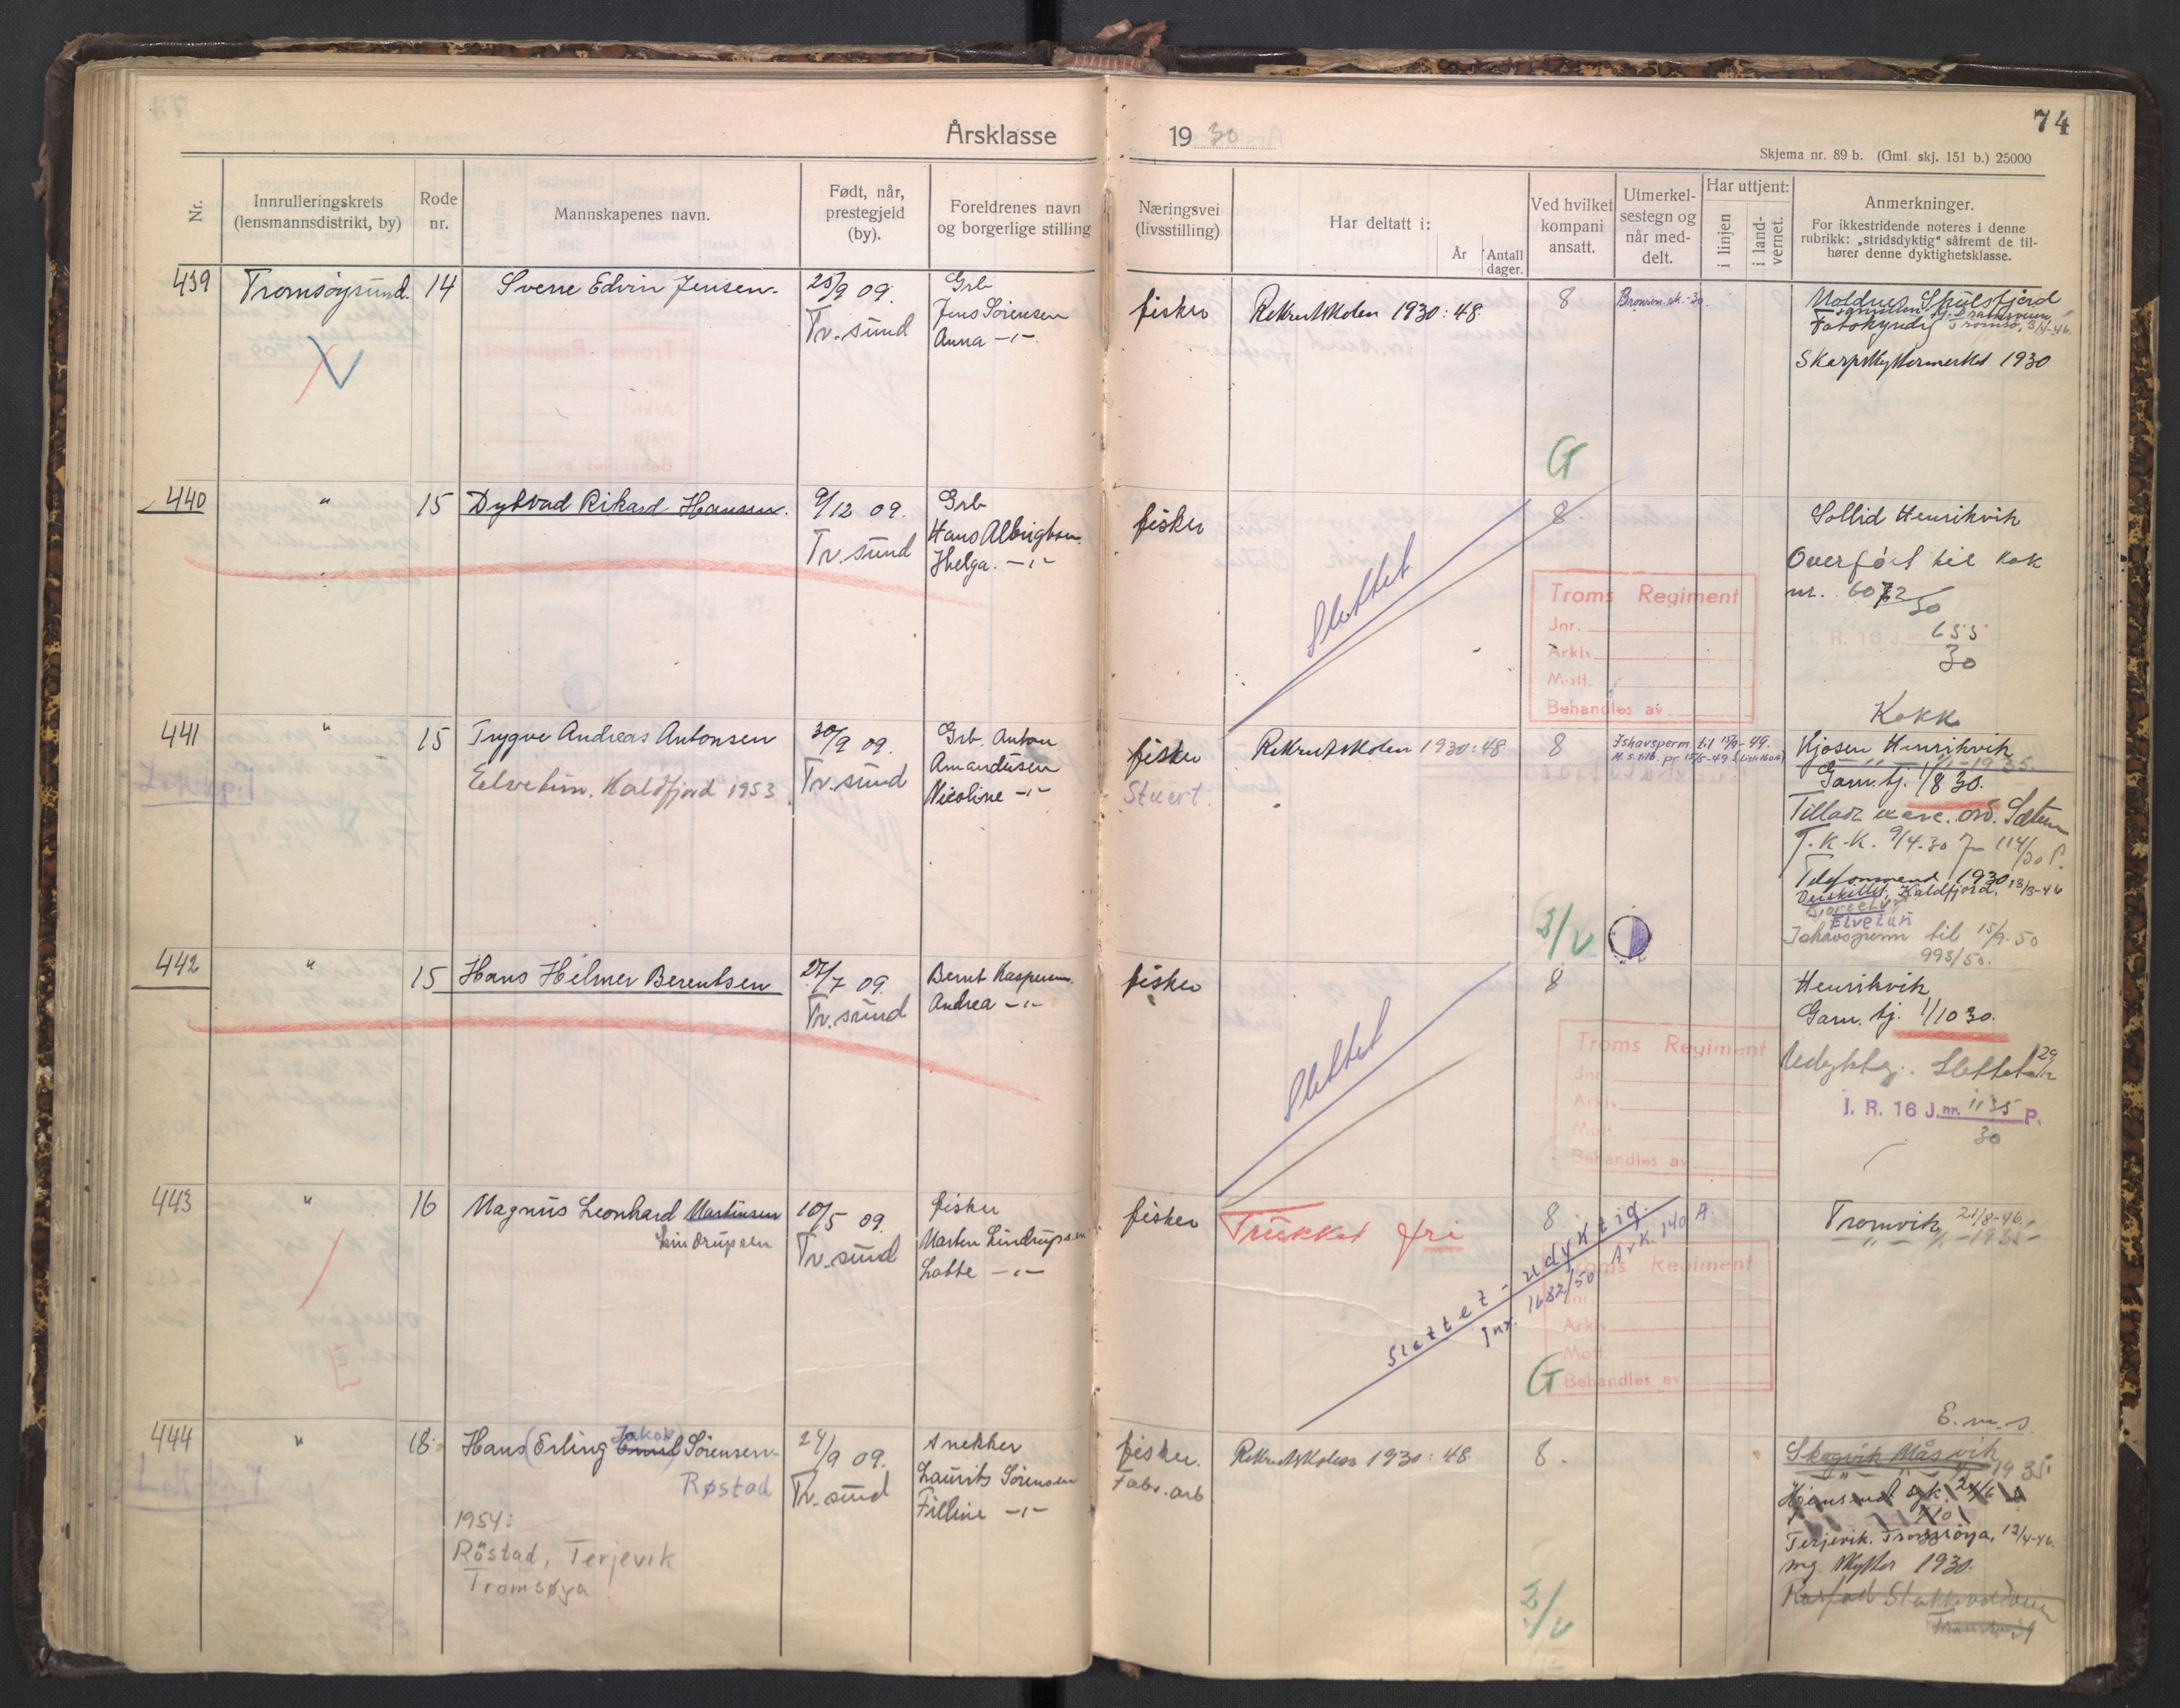 74
Årsklasse 1930
Skjema nr. 89 b. (Gml. skj. 151 b.) 25000
Nr.
Innrulleringskrets (lensmannsdistrikt, by)
Rode nr.
Mannskapenes navn.
Født, når, prestegjeld (by).
Foreldrenes navn og borgerlige stilling
Næringsvei (livsstilling)
Har deltatt i:
År
Antall dager.
Ved hvilket kompani ansatt.
Utmerkelsestegn og når meddelt.
Har uttjent:
i linjen
i landvernet.
Anmerkninger.
For ikkestridende noteres i denne rubrikk: „stridsdyktig" såfremt de tilhører denne dyktighetsklasse.
439 Tromsøysund. 14 Sverre Edvin Jensen. 25/9 09. Grb
Tr. sund Jens Sørensen
Anna -"-
fisker Rekrutskolen 1930: 48 8
Skulsfjord
Tromsø, 3/4-46.
Skarpskyttermerket 1930
G
440 " 15 Dybvad Rikard Hansen. 9/12 09. Grb
Tr. sund Hans Albrigtsen
Helga. -"-
fisker 8 Sollid Henrikvik
Slettet
Overført til kok
nr. 6072/30
I. R. 16 J.nr. 655
30
Troms Regiment
Jnr.
Arkiv
Mott.
Behandles av
Kokk
441 " 15 Trygve Andreas Antonsen 30/9 09. Grb. Anton
Elvetun, Kaldfjord 1953 Tr. sund Amandusen
Nicoline -"-
fisker Rekrutskolen 1930: 48 8 Ishavsperm. til 15/9-49.
Stuert.
Kjosen Henrikvik
" " 1/1-1935.
Garn. tj. 1/8 30.
T.K.K. 9/4-30
Telefonmend 1930
Kaldfjord, 13/3-46
Elvetun
Ishavsperm til 15/9-50
993/50.
442 " 15 Hans Helmer Berentsen 27/7 09. Bernt Kaspersen.
Tr. sund Andrea -"-
fisker 8 Henrikvik
Slettet
Garn. tj. 1/10 30.
Udyktig. Slettet 29/12
I. R. 16 J.nr. 1135 P.
30
Troms Regiment
Jnr.
Arkiv
Mott.
Behandles av
443 " 16 Magnus Leonhard Martinsen 10/5 09. fisker
Lindrupsen Tr. sund Marten Lindrupsen
Lotte -"-
fisker Trukket fri 8 Tromvik 21/8-46.
" 1/1-1935-
Slettet - udyktig.
Jnr. 1632/50 Ark. 140 A.
Troms Regiment
Jnr.
Arkiv
Mott.
Behandles av
E
G
444 " 18 Hans (Erling Jakob) Emil Sørensen 24/9 09. Snekker
Røstad Tr. sund Laurits Sørensen
Filline -"-
1954:
Röstad, Terjevik
Tromsøya
fisker. Rekrutskolen 1930: 48 8.
Fabr. arb
E. m. s.
Skogvik Måsvik
1935
Terjevik, Tromsøya, 12/4-46.
mg. skytter 1930.